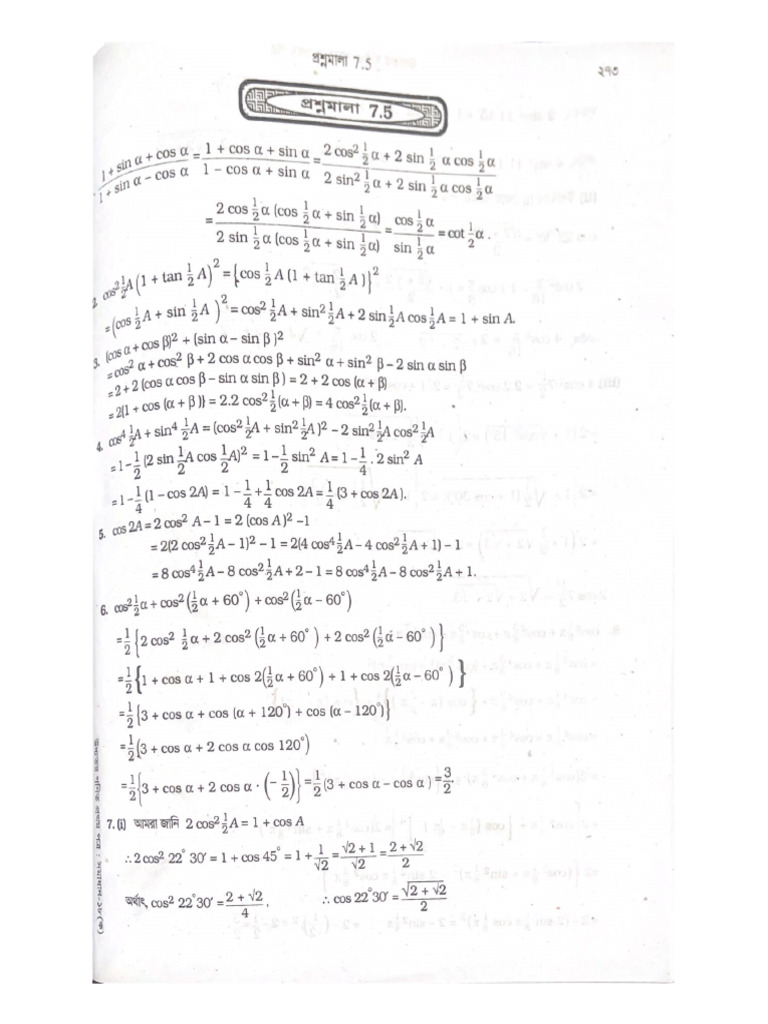 প্রশ্নমালা 7.5
২৭৩
প্রশ্নমালা 7.5
(1 + sin α + cos α)/(1 + sin α − cos α) = (1 + cos α + sin α)/(1 − cos α + sin α) = (2 cos² ½ α + 2 sin ½ α cos ½ α)/(2 sin² ½ α + 2 sin ½ α cos ½ α)
= (2 cos ½ α (cos ½ α + sin ½ α))/(2 sin ½ α (cos ½ α + sin ½ α)) = (cos ½ α)/(sin ½ α) = cot ½ α .
2. cos² ½ A (1 + tan ½ A)² = {cos ½ A (1 + tan ½ A )}²
= (cos ½ A + sin ½ A )² = cos² ½ A + sin² ½ A + 2 sin ½ A cos ½ A = 1 + sin A.
3. (cos α + cos β)² + (sin α − sin β )²
= cos² α + cos² β + 2 cos α cos β + sin² α + sin² β − 2 sin α sin β
= 2 + 2 (cos α cos β − sin α sin β ) = 2 + 2 cos (α + β)
= 2{1 + cos (α + β )} = 2.2 cos² ½ (α + β) = 4 cos² ½ (α + β).
4. cos⁴ ½ A + sin⁴ ½ A = (cos² ½ A + sin² ½ A )² − 2 sin² ½ A cos² ½ A
= 1 − ½ (2 sin ½ A cos ½ A)² = 1 − ½ sin² A = 1 − ¼ . 2 sin² A
= 1 − ¼ (1 − cos 2A) = 1 − ¼ + ¼ cos 2A = ¼ (3 + cos 2A).
5. cos 2A = 2 cos² A − 1 = 2 (cos A )² −1
= 2(2 cos² ½ A − 1)² − 1 = 2(4 cos⁴ ½ A − 4 cos² ½ A + 1) − 1
= 8 cos⁴ ½ A − 8 cos² ½ A + 2 − 1 = 8 cos⁴ ½ A − 8 cos² ½ A + 1.
6. cos² ½ α + cos² (½ α + 60°) + cos² (½ α − 60°)
= ½ {2 cos² ½ α + 2 cos² (½ α + 60° ) + 2 cos² (½ α − 60° )}
= ½ {1 + cos α + 1 + cos 2(½ α + 60°) + 1 + cos 2(½ α − 60° )}
= ½ {3 + cos α + cos (α + 120°) + cos (α − 120°)}
= ½ (3 + cos α + 2 cos α cos 120°)
= ½ {3 + cos α + 2 cos α · (− ½)} = ½ (3 + cos α − cos α ) = 3/2
7. (i) আমরা জানি 2 cos² ½ A = 1 + cos A
∴ 2 cos² 22° 30′ = 1 + cos 45° = 1 + 1/√2 = (√2 + 1)/√2 = (2 + √2)/2
অর্থাৎ, cos² 22°30′ = (2 + √2)/4 , ∴ cos 22°30′ = √(2 + √2)/2